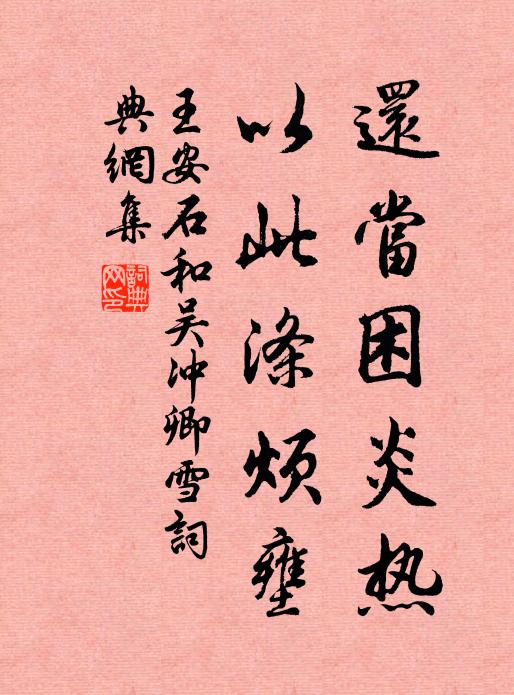 還當困炎热
以此涤烦壅
王安石和吴冲卿雪詞
典網集
詞典
网印